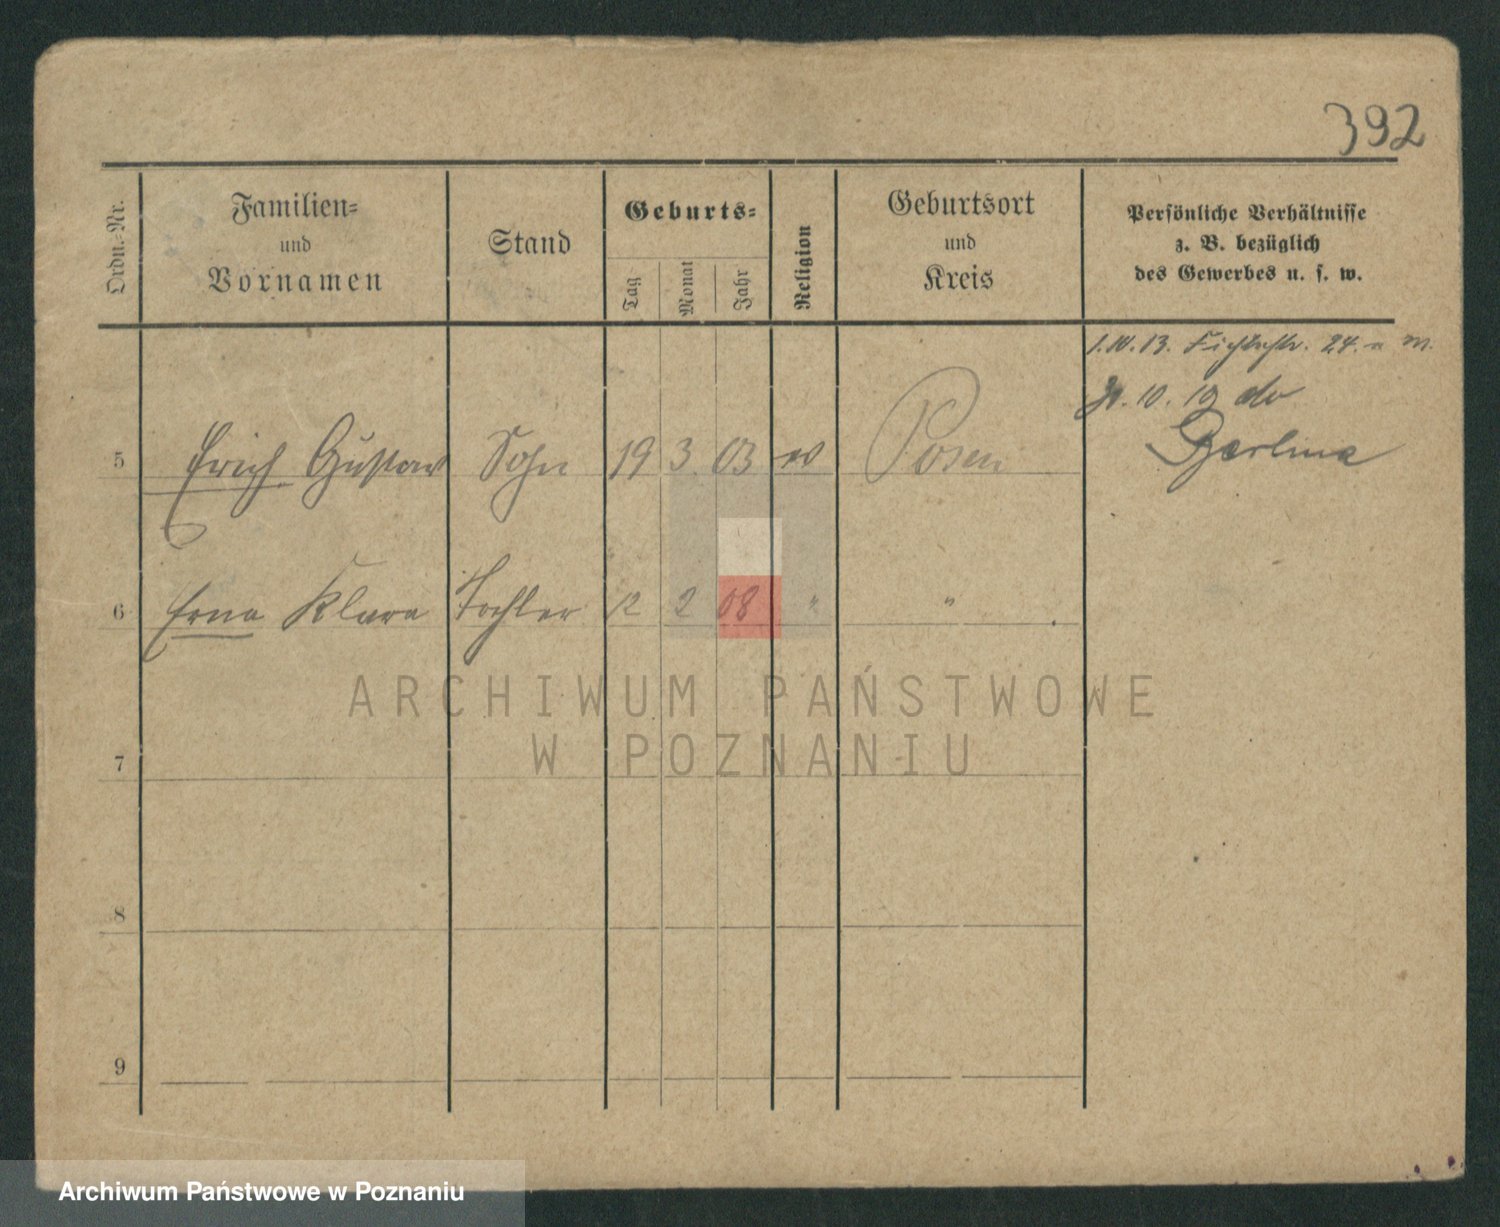 392
Ordn.-Nr.
Familien-
und
Vornamen
Stand
Geburts-
Tag
Monat
Jahr
Religion
Geburtsort
und
Kreis
Persönliche Verhältnisse
z. B. bezüglich
des Gewerbes u. s. w.
1.10.13. Fichtestr. 24.
10. 19 do
Berlina
5 Erich Gustav Sohn 19 3 03 ev Posen
6 Erna Klara Tochter 12 2 08 " "
7
8
9
ARCHIWUM PAŃSTWOWE
W POZNANIU
Archiwum Państwowe w Poznaniu